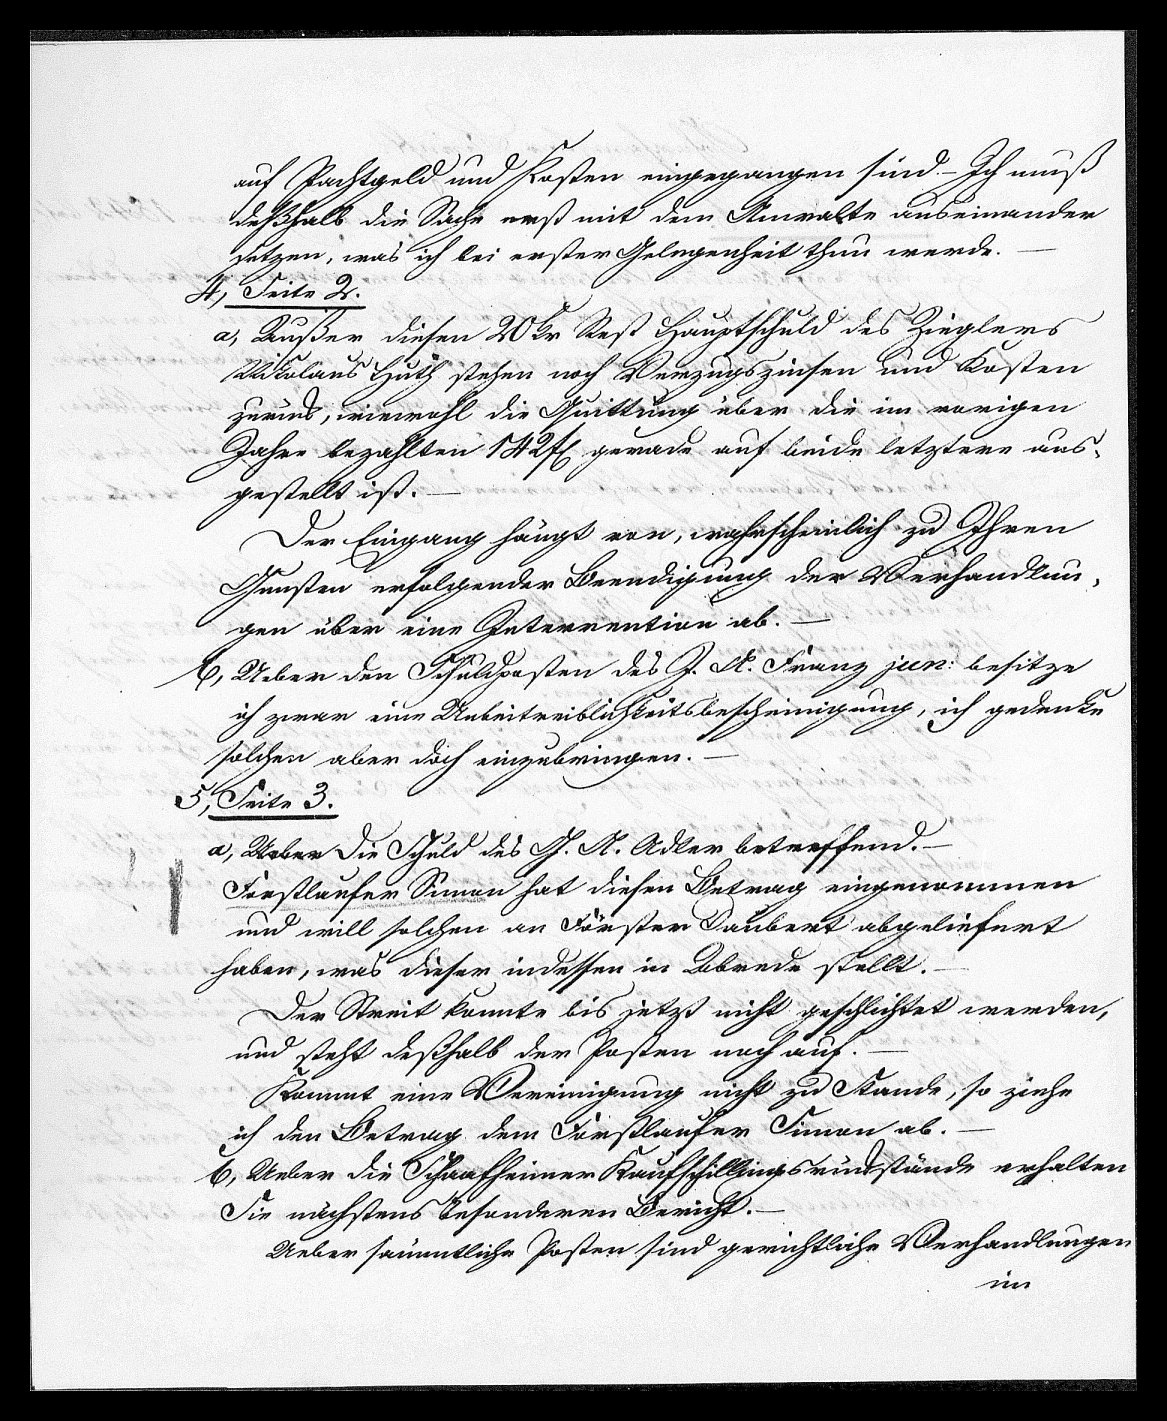 auf Pachtgeld und Kosten eingegangen sind – Ich muß
deßhalb die Sache erst mit dem Anwalte auseinander
setzen, was ich bei erster Gelegenheit thun werde. —
4, Seite 2.
a, Außer diesen 20 Kr Rest Hauptschuld des Zieglers
Nikolaus Huth stehen noch Verzugszinsen und Kosten
zurück, wiewohl die Quittung über die im vorigen
Jahre bezahlten 142 f gerade auf beide letztere aus-
gestellt ist. —
Der Eingang hängt von, wahrscheinlich zu Ihren
Gunsten erfolgender Beendigung der Verhandlun-
gen über eine Intervention ab. —
b, Ueber den Schuldposten des J. A. Franz jun: besitze
ich zwar eine Unbeitreiblichkeitsbescheinigung, ich gedenke
solchen aber doch einzubringen. —
5, Seite 3.
a, Ueber die Schuld des G. A. Adler betreffend. —
Forstlaufer Simon hat diesen Betrag eingenommen
und will solchen an Förster Daubert abgeliefert
haben, was dieser indessen in Abrede stellt. —
Der Streit konnte bis jetzt nicht geschlichtet werden,
und steht deßhalb der Posten noch auf. —
Kommt eine Vereinigung nicht zu Stande, so ziehe
ich den Betrag dem Forstlaufer Simon ab. —
b, Ueber die Schaafheimer Kaufschillingsrückstände erhalten
Sie nächstens besonderen Bericht. —
Ueber sämmtliche Posten sind gerichtliche Verhandlungen
im